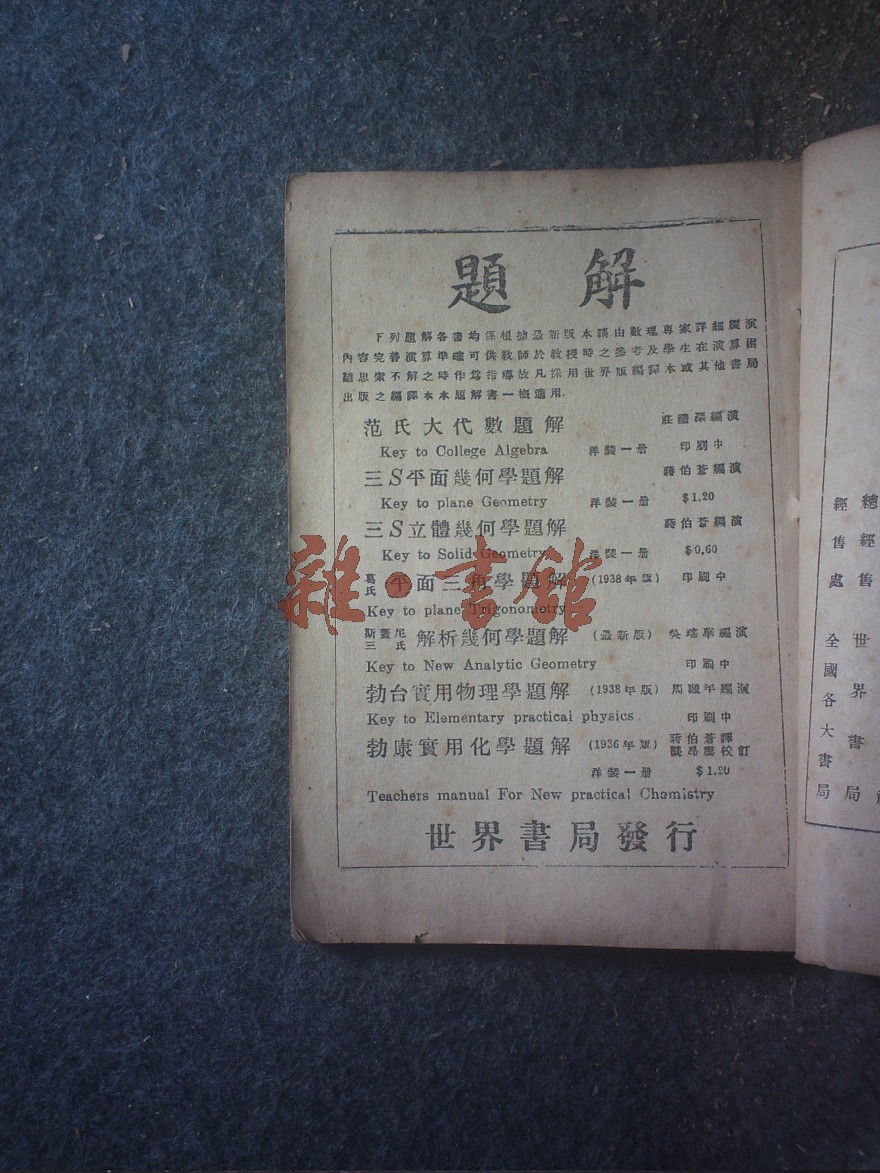 題解
下列題解各書均係根據最新版本請由數理專家詳細編演
內容完善演算準確可供教師於教授時之參考及學生在演算困
難思索不解之時作爲指導故凡採用世界版編譯本或其他書局
出版之編譯本本題解書一概適用.
范氏大代數題解 莊禮深編演
Key to College Algebra 洋裝一册 印刷中
三S平面幾何學題解 蔣伯蒼編演
Key to plane Geometry 洋裝一册 $1.20
三S立體幾何學題解 蔣伯蒼編演
Key to Solid Geometry 洋裝一册 $0.60
葛氏 平面三角學題解 (1938年版) 印刷中
Key to plane Trigonometry
斯蓋尼三氏 解析幾何學題解 (最新版) 吳瑤華編演
Key to New Analytic Geometry 印刷中
勃台實用物理學題解 (1938年版) 周 年編演
Key to Elementary practical physics. 印刷中
勃康實用化學題解 (1936年版) 蔣伯蒼譯 龔昂雲校訂
洋裝一册 $1.20
Teachers manual For New practical Chemistry
世界書局發行
總經售 世界書局
經售處 全國各大書局
雜·書館